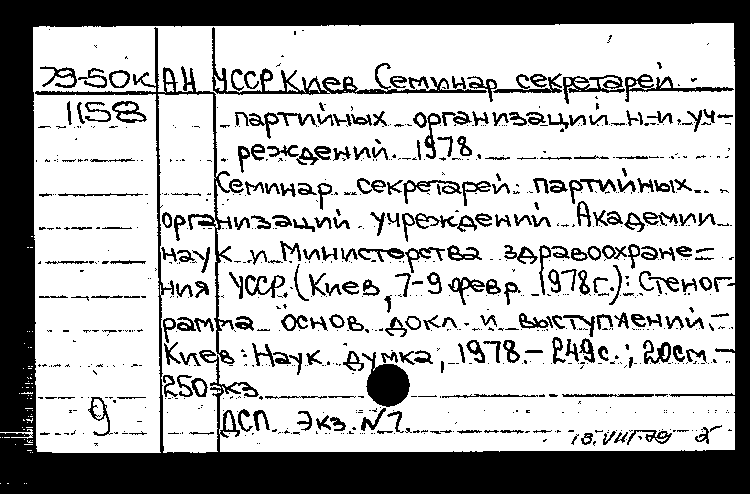 79-50к АН УССР Киев Семинар секретарей
1158 партийных организаций н.-и. уч-
реждений. 1978.
Семинар секретарей партийных
организаций учреждений Академии
наук и Министерства здравоохране-
ния УССР. (Киев, 7-9 февр. 1978г.): Стеног-
рамма основ. докл. и выступлений.-
Киев: Наук. думка, 1978.- 249с.; 20см.-
250экз.
9 ДСП. Экз. №7.
13.VIII-79